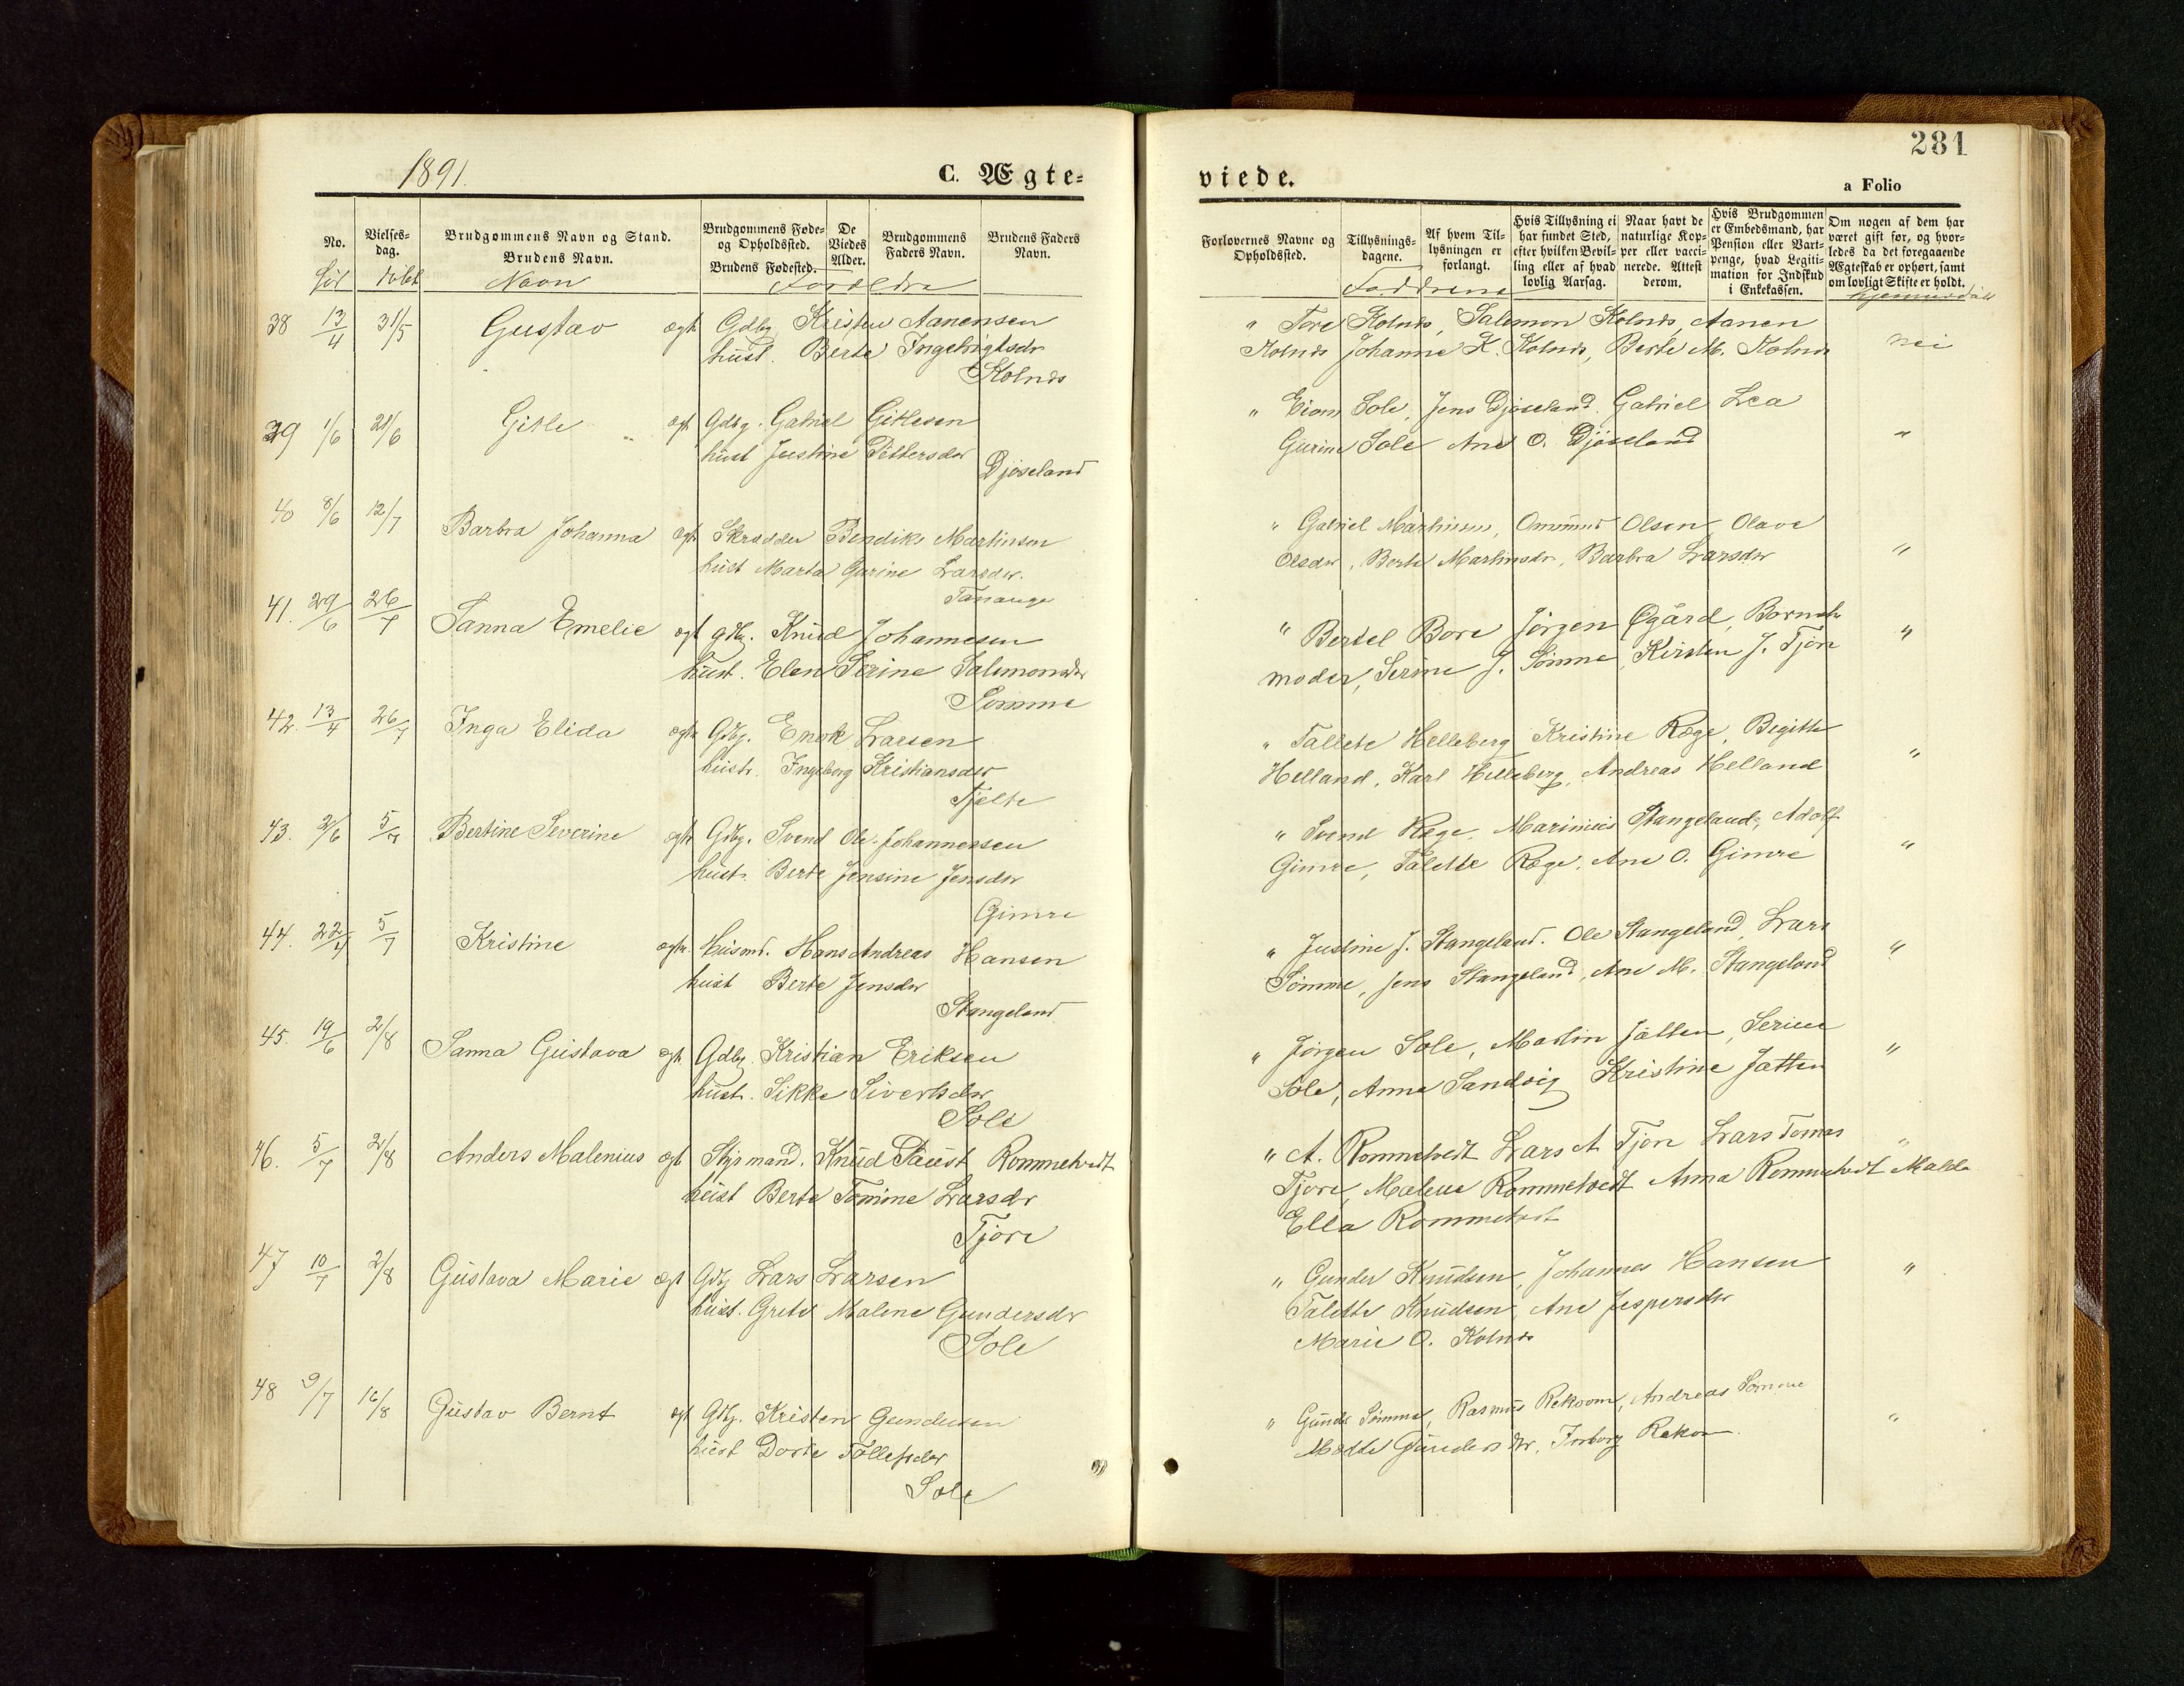 1891.
C. Ægte-
No.
Vielses-
dag.
Brudgommens Navn og Stand.
Brudens Navn.
Brudgommens Føde-
og Opholdssted.
Brudens Fødested.
De
Viedes
Alder.
Brudgommens
Faders Navn.
Brudens Faders
Navn.
Navn
Forældre
38 13/4 31/5 Gustav ægt Gdbg Kristen Aanensen
hust. Berte Ingebrigtsdr
Kolnes
39 1/6 21/6 Gitle ægt Gdbg. Gabriel Gitlesen
hust Justine Pettersdr
Djøseland
40 8/6 12/7 Barbra Johanna ægt Skrædder Bendiks Martinsen
hust Marta Gurine Larsdr.
Tananger
41. 29/6 26/7 Sanna Emelie ægt gdbg. Knud Johannesen
hust. Elen Serine Salemonsdr
Sømme
42. 13/4 26/7 Inga Elida ægte Gdbg. Enok Larsen
hustr. Ingeborg Kristiansdr
Tjelte
43. 2/6 5/7 Bertine Severine ægte Gdbg. Svend Ole Johannessen
hust. Berte Jensine Jensdr
Gimre
44. 22/4 5/7 Kristine ægte. Husmd. Hans Andreas Hansen
hust Berte Jensdr
Stangeland
45. 19/6 2/8 Sanna Gustava ægt. Gdbg. Kristian Eriksen
hust. Sikke Sivertsdr
Sole
46. 5/7 2/8 Anders Malenius ægt Styrmand. Knud Faust Rommetvedt
hust Berte Tomine Larsdr
Tjøre
47 10/7 2/8 Gustava Marie ægt Gdbg Lars Larsen
hust. Grete Malene Gundersdr
Sole
48 9/7 16/8 Gustav Bernt ægt Gdbg. Kristen Gundersen
hust Dorte Tollefsdr
Sole
281
viede.
a Folio
Forlovernes Navne og
Opholdssted.
Tillysnings-
dagene.
Af hvem Til-
lysningen er
forlangt.
Hvis Tillysning ei
har fundet Sted,
efter hvilken Bevil-
ling eller af hvad
lovlig Aarsag.
Naar havt de
naturlige Kop-
per eller vacci-
nerede. Attest
derom.
Hvis Brudgommen
er Embedsmand, har
Pension eller Vart-
penge, hvad Legiti-
mation for Indskud
i Enkekassen.
Om nogen af dem har
været gift før, og hvor-
ledes da det foregaaende
Ægteskab er ophørt, samt
om lovligt Skifte er holdt.
Faddrene
hjemmedøbt
" Tore Kolnes, Salemon Kolnes, Aanen
Kolnes Johanne K. Kolnes, Berte M. Kolnes nei
" Sole, Jens Djøseland. Gabriel Lea
Gurine Sole Ane O. Djøseland "
" Gabriel Martinsen, Omund Olsen Olave
Olsdr, Berte Martinsdr, Barbra Larsdr "
" Bertel Bore Jörgen Øgård, Barnets
moder, Serine J. Sømme, Kirsten J. Tjøre "
" Tallete Helleberg Kristine Ræge, Begitte
Helland, Karl Helleberg, Andreas Helland "
" Svend Ræge, Marinius Stangeland, Adolf
Gimre, Talette Ræge, Ane O. Gimre "
" Justine J. Stangeland. Ole Stangeland, Lars
Sømme, Jens Stangeland, Ane M. Stangeland "
" Jørgen Sole, Martin Jåtten, Serine
Sole, Anna Sandvig Kristine Jåtten "
" A. Rommetvedt Lars A Tjøre Lars Tomas "
Tjøre, Malene Rommetvedt Anna Rommetvedt Malde
Ella Rommetvedt
" Gunder Knudsen, Johannes Hansen "
Talette Knudsen, Ane Jespersdr
Marie O. Kolnes
" Gunder Sømme, Rasmus Rekoom, Andreas Sømme
Madte Gundersdr, Inborg Rekom "